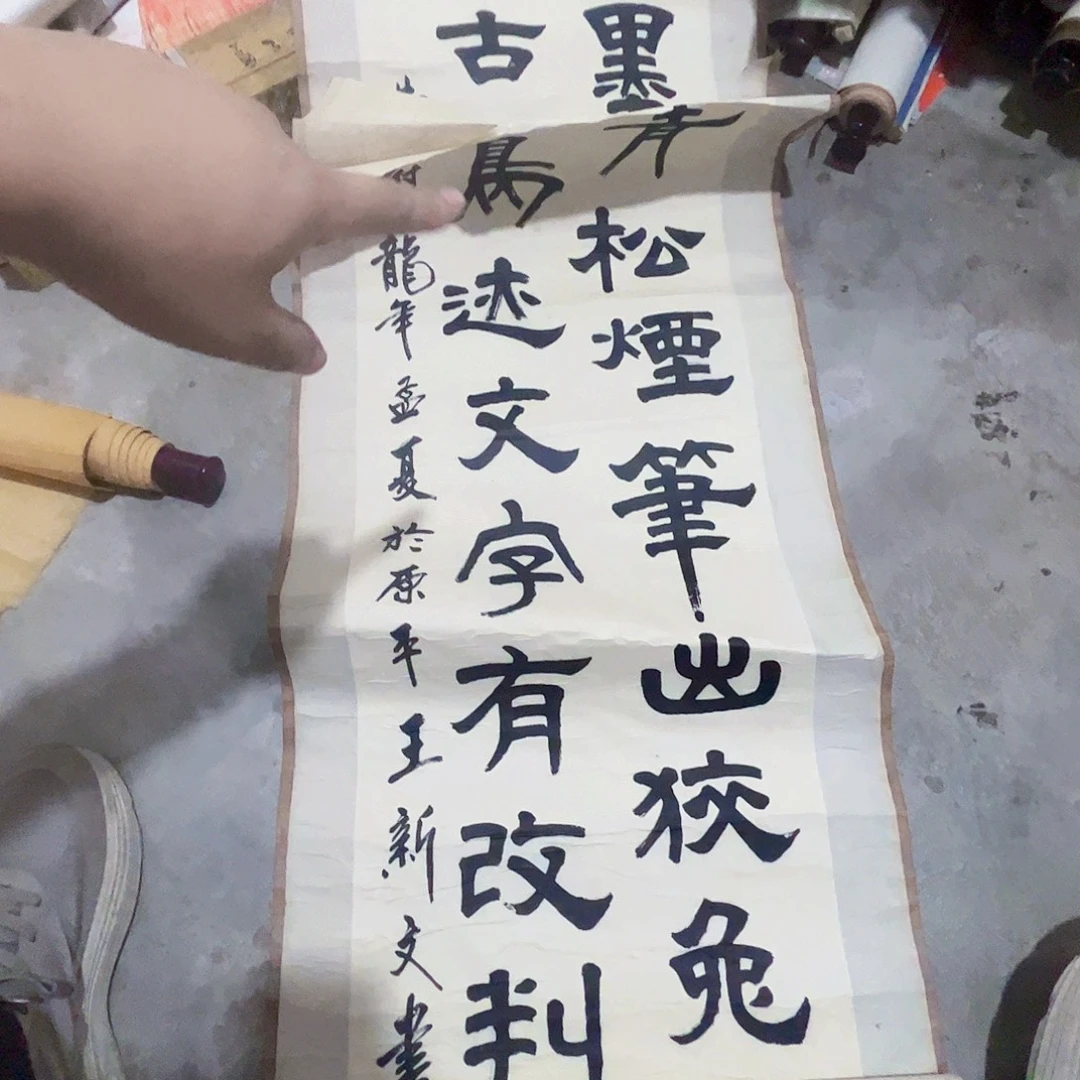 墨青松煙筆出狡兔
古鳥迹文字有改判
龍年孟夏於原平王新文書